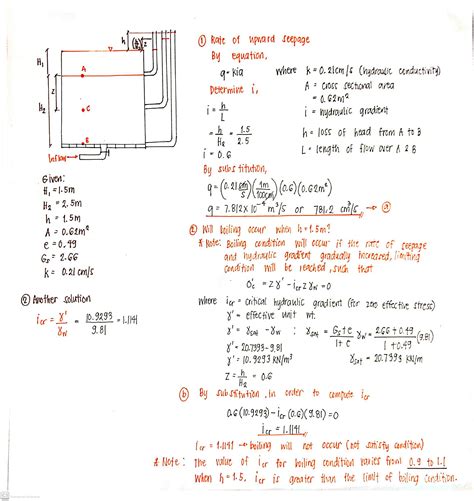 h (h/H₂)z
H₁
A
z
H₂
C
B
Inflow
Given:
H₁ = 1.5m
H₂ = 2.5m
h = 1.5m
A = 0.62m²
e = 0.49
Gs = 2.66
k = 0.21 cm/s
② Another solution
icr = γ'/γw = 10.9293/9.81 = 1.1141
① Rate of upward seepage
By equation,
q = kia where k = 0.21cm/s (hydraulic conductivity)
A = cross sectional area
= 0.62m²
Determine i,
i = hydraulic gradient
i = h/L
h = loss of head from A to B
= h/H₂ = 1.5/2.5
L = length of flow over A & B
i = 0.6
By substitution,
q = (0.21 cm/s)(1m/100cm)(0.6)(0.62m²)
q = 7.812 x 10⁻⁴ m³/s or 781.2 cm³/s → ⓐ
② Will boiling occur when h = 1.5m?
* Note: Boiling condition will occur if the rate of seepage
and hydraulic gradient gradually increased, limiting
condition will be reached, such that
σ'c = zγ' - icr zγw = 0
Where icr = critical hydraulic gradient (for zero effective stress)
γ' = effective unit wt.
γ' = γsat - γw ; γsat = Gs+e/1+e γw = 2.66 + 0.49/1 + 0.49 (9.81)
γ' = 20.7393 - 9.81
γ' = 10.9293 kN/m³ γsat = 20.7393 kN/m
z = h/H₂ = 0.6
ⓑ By substitution, in order to compute icr
0.6 (10.9293) - icr (0.6)(9.81) = 0
icr = 1.1141
icr = 1.1141 → boiling will not occur (not satisfy condition)
* Note: The value of icr for boiling condition varies from 0.9 to 1.1
When h = 1.5, icr is greater than the limit of boiling condition.